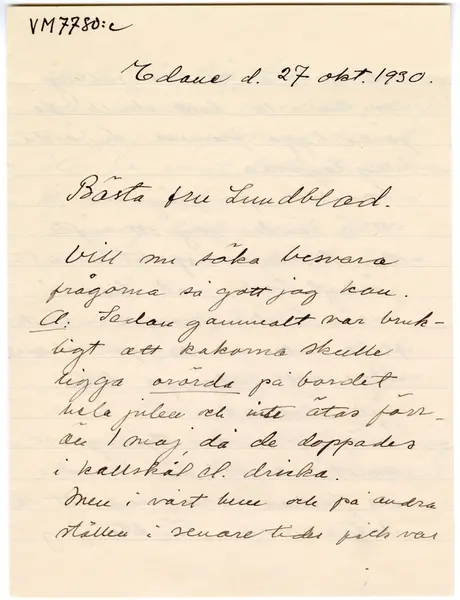 VM7780:c
Edane d. 27 okt. 1930.
Bästa fru Lundblad.
Vill nu söka besvara
frågorna så gott jag kan.
A: Sedan gammalt var bruk-
ligt att kakorna skulle
ligga orörda på bordet
hela julen och inte ätas förr-
än 1 maj, då de doppades
i kallskål el. dricka.
Men i vårt hem och på andra
ställen i senare tider fick var